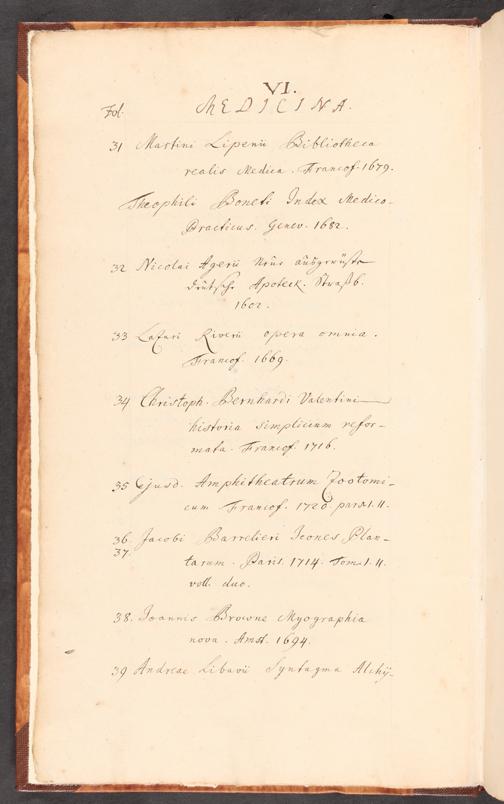 VI.
Fol. MEDICINA.
31 Martini Lipenii Bibliotheca
realis Medica. Francof. 1679.
Theophili Boneti Index Medico-
Practicus. Genev. 1682.
32 Nicolai Agerii Neüe aüßgerüste
deütsche Apoteck. Straßb.
1602.
33 Lazari Riverii opera omnia.
Francof. 1669.
34 Christoph. Bernhardi Valentini
historia simplicium refor-
mata. Francof. 1716.
35 Ejusd. Amphitheatrum Zootomi-
cum Francof. 1720. pars I. II.
36. Jacobi Barrelieri Icones Plan-
37. tarum. Paris. 1714. Tom. I. II.
voll. duo.
38. Joannis Browne Myographia
nova. Amst. 1694.
39 Andreae Libavii Syntagma Alchÿ-